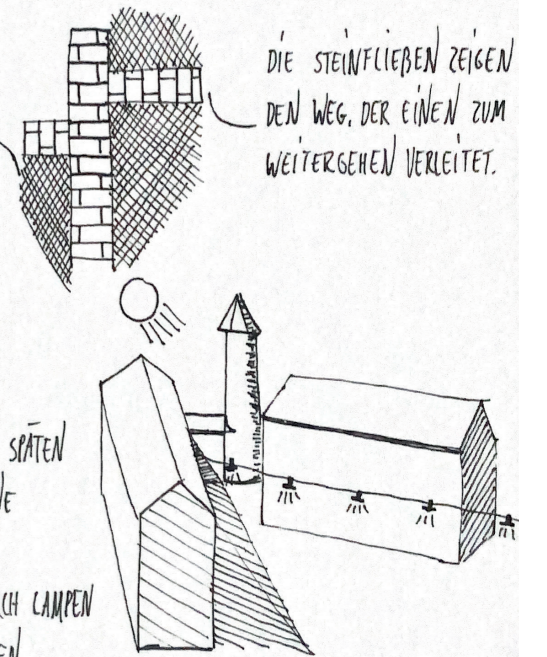 DIE STEINFLIEßEN ZEIGEN
DEN WEG, DER EINEN ZUM
WEITERGEHEN VERLEITET.
SPÄTEN
LAMPEN